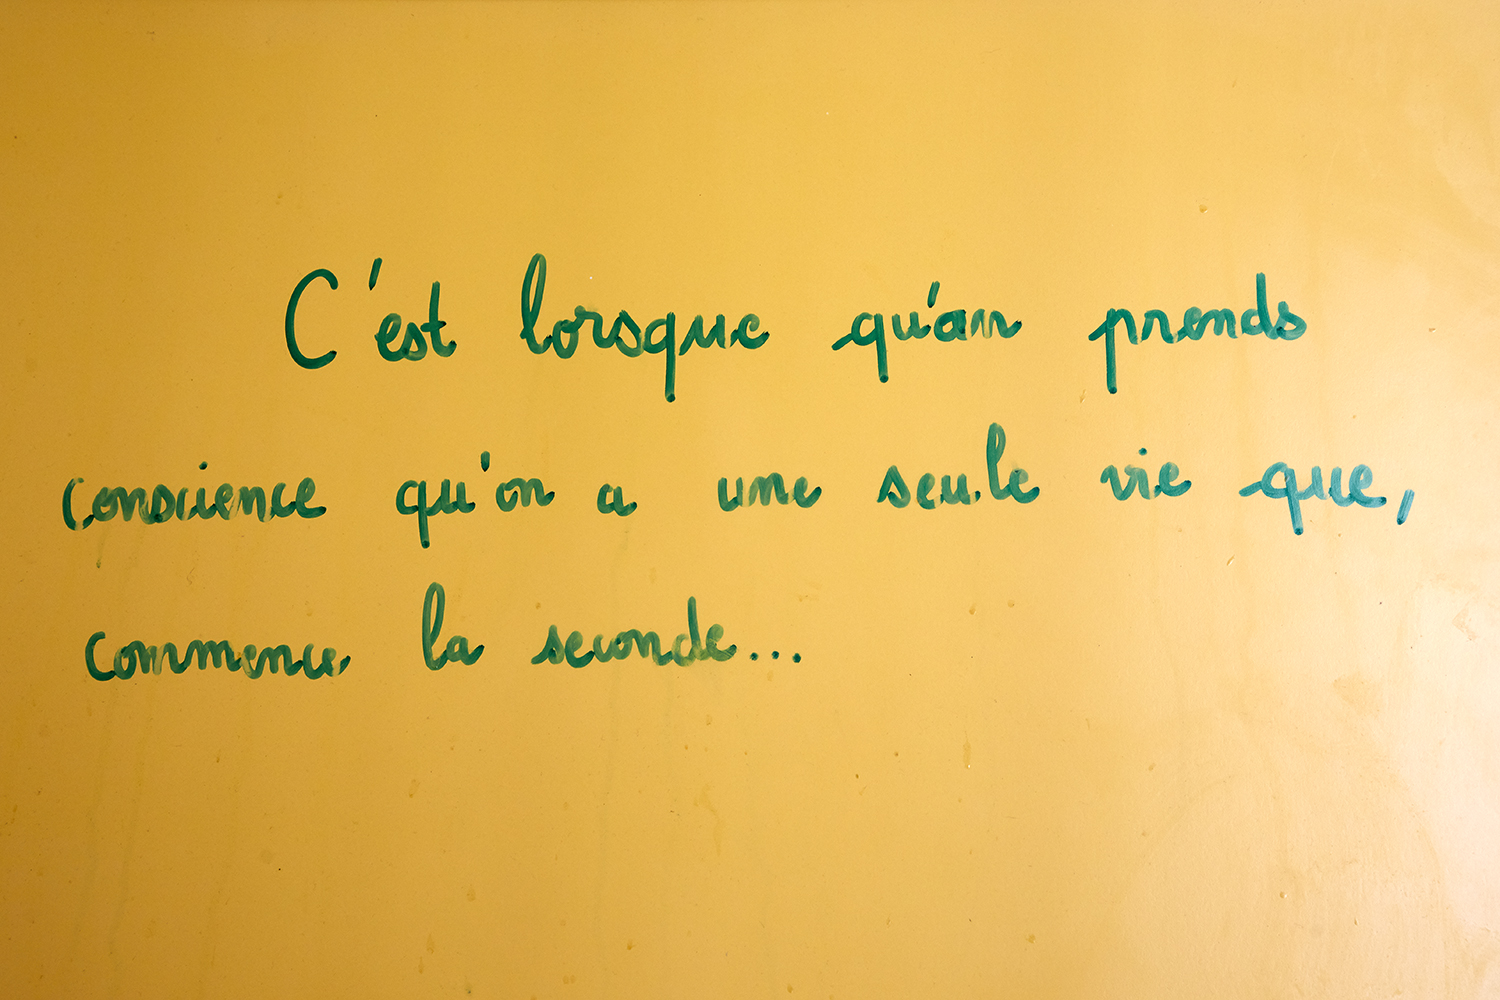 C'est lorsque qu'on prends
conscience qu'on a une seule vie que,
commence la seconde...